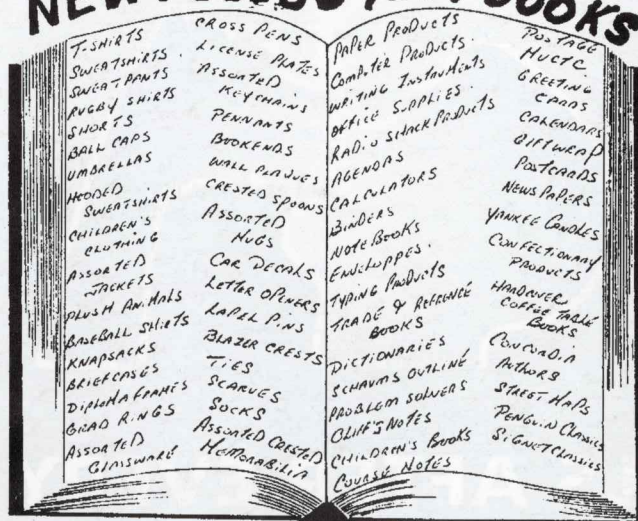 BOOKS
T-SHIRTS
SWEATSHIRTS.
SWEATPANTS
RUGBY SHIRTS
SHORTS
BALL CAPS
UMBRELLAS
HOODED
SWEATSHIRTS
CHILDREN'S
CLOTHING
ASSORTED
JACKETS
PLUSH ANIMALS
BASEBALL SHIRTS
KNAPSACKS
BRIEFCASES
DIPLOMA FRAMES
GRAD RINGS
ASSORTED
GLASSWARE
CROSS PENS
LICENSE PLATES
ASSORTED
KEYCHAINS
PENNANTS
BOOKENDS
WALL PLAQUES
CRESTED SPOONS
ASSORTED
MUGS
CAR DECALS
LETTER OPENERS
LAPEL PINS
BLAZER CRESTS
TIES
SCARVES
SOCKS
ASSORTED CRESTED
MEMORABILIA
PAPER PRODUCTS
COMPUTER PRODUCTS.
WRITING INSTRUMENTS
OFFICE SUPPLIES.
RADIO SHACK PRODUCTS
AGENDAS
CALCULATORS
BINDERS
NOTE BOOKS
ENVELOPPES.
TYPING PRODUCTS
TRADE & REFERENCE
BOOKS
DICTIONARIES
SCHAUMS OUTLINE
PROBLEM SOLVERS
CLIFF'S NOTES
CHILDREN'S BOOKS
COURSE NOTES
POSTAGE
HUCTC.
GREETING
CARDS
CALENDARS
GIFTWRAP
POSTCARDS
NEWSPAPERS
YANKEE CANDLES
CONFECTIONARY
PRODUCTS
HARDCOVER
COFFEE TABLE
BOOKS
CONCORDIA
AUTHORS
STREET MAPS
PENGUIN CLASSICS
SIGNET CLASSICS